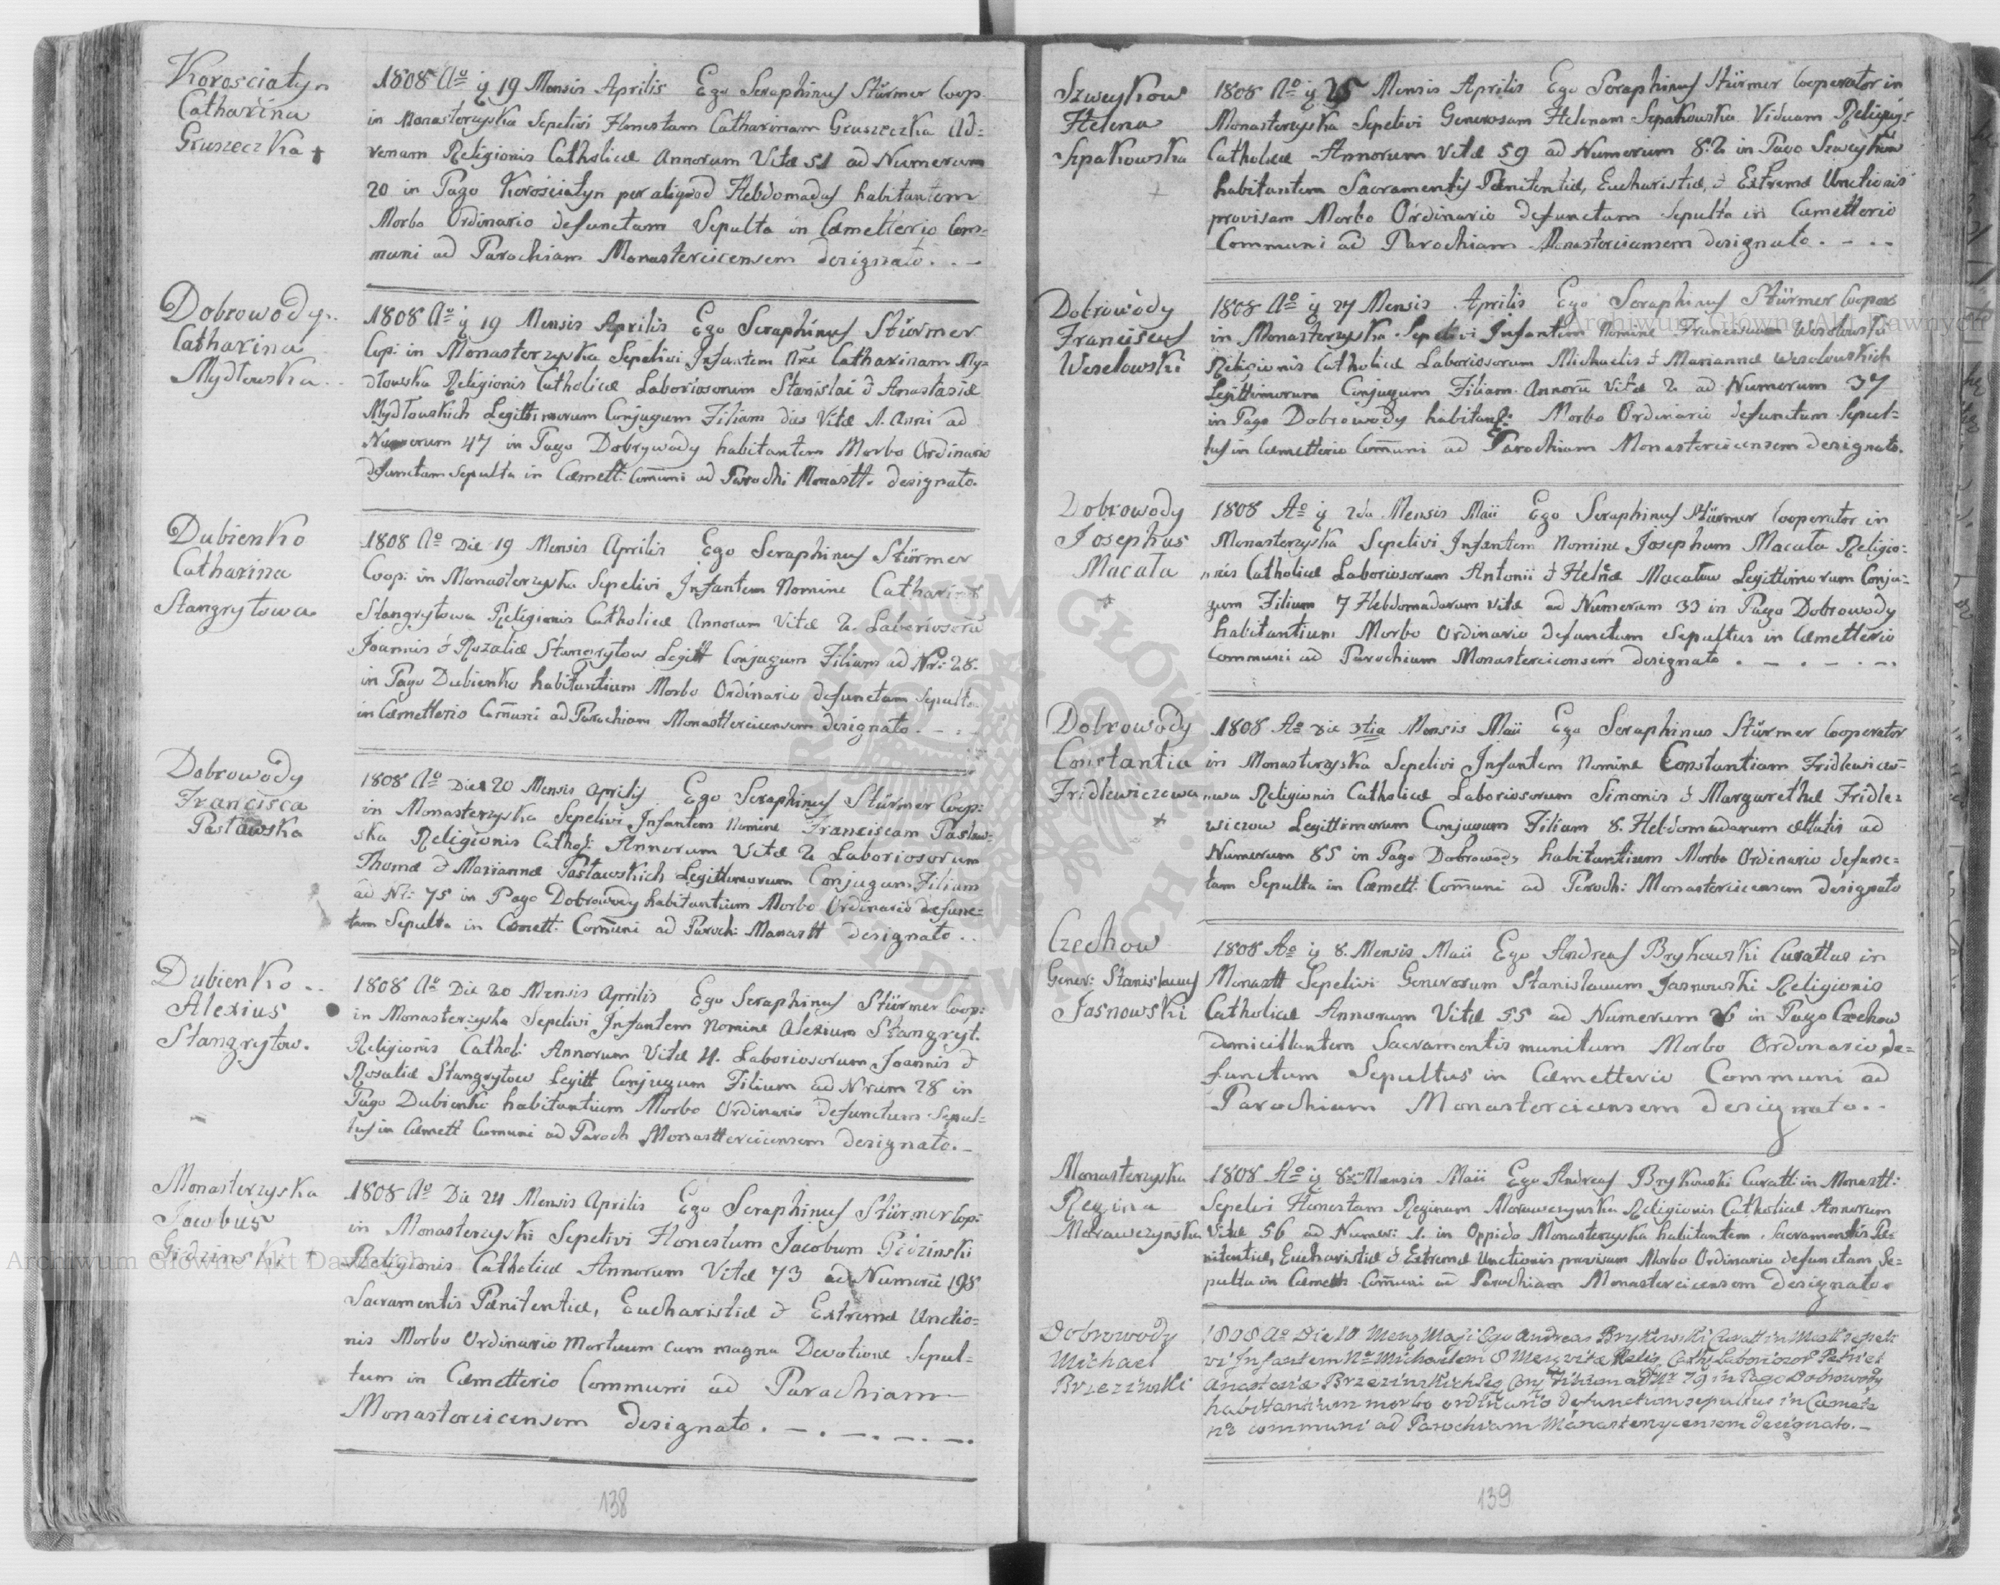 Korosciatyn
Catharina
Gruszeczka +
1808 Aº ÿ 19 Mensis Aprilis Ego Seraphinus Stürmer Coop
in Monasterzyska Sepelivi Honestam Catharinam Gruszeczka Ad=
venam Religionis Catholicæ Annorum Vitæ 51 ad Numerum
20 in Pago Korosciatyn per aliquod Hebdomadas habitantem
Morbo Ordinario defunctam Sepulta in Cæmetterio Com=
muni ad Parochiam Monastercicensem designato. . –
Dobrowody
Catharina
Mydłowska
1808 Aº ÿ 19 Mensis Aprilis Ego Seraphinus Stürmer
Cop: in Monasterzyska Sepelivi Infantem Catharinam My=
dłowska Religionis Catholicæ Laboriosorum Stanislai & Anastasiæ
Mydłowskich Legittimorum Conjugum Filiam dies Vitæ 1. Anni ad
Numerum 47 in Pago Dobrywody habitantem Morbo Ordinario
defunctam Sepulta in Cæmett: Com̄uni ad Parochi Monastt. designato.
Dubienko
Catharina
Stangrytowa
1808 Aº Die 19 Mensis Aprilis Ego Seraphinus Stürmer
Coop: in Monasterzyska Sepelivi Infantem Nomine Catharina
Stangrytowa Religionis Catholicæ Annorum Vitæ 2. Laboriosorū
Joannis & Rozaliæ Stangrytow Legitt Conjugum Filiam ad Nr: 28.
in Pago Dubienko habitantium Morbo Ordinario defunctam Sepulta
in Cæmetterio Com̄uni ad Parochiam Monastterciensem designato. – . –
Dobrowody
Francisca
Pasławska
1808 Aº Die 20 Mensis Aprilis Ego Seraphinus Stürmer Coop:
in Monasterzyska Sepelivi Infantem Nomine Franciscam Pasław=
ska Religionis Cathol: Annorum Vitæ 2 Laboriosorum
Thomæ & Mariannæ Pasławskich Legittimorum Conjugum Filiam
ad Nr: 75 in Pago Dobrowody habitantium Morbo Ordinario defunc=
tam Sepulta in Cæmett: Com̄uni ad Paroch: Monastt designato. .
Dubienko . .
Alexius
Stangrytow.
1808 Aº Die 20 Mensis Aprilis Ego Seraphinus Stürmer Coop:
in Monasterzyska Sepelivi Infantem Nomine Alexium Stangryt.
Religionis Cathol: Annorum Vitæ 4. Laboriosorum Joannis &
Rosaliæ Stangrytow Legitt Conjugum Filium ad Nrum 28 in
Pago Dubienko habitantium Morbo Ordinario defunctum Sepul=
tus in Cæmett Comuni ad Paroch Monasttercicensem designato. –
Monasterzyska
Jacobus
Gidzinski +
1808 Aº Die 24 Mensis Aprilis Ego Seraphinus Stürmer Cop:
in Monasterzyska Sepelivi Honestum Jacobum Gidzinski
Religionis Catholicæ Annorum Vitæ 73 ad Numerū 198
Sacramentis Pænitentiæ, Eucharistiæ & Extremæ Unctio=
nis Morbo Ordinario Mortuum cum magna Devotione Sepul=
tum in Cæmetterio Communi ad Parochiam
Monastercicensem designato. – . – . – . – .
138
Szweykow
Helena
Szpakowska
1808 Aº ÿ 25 Mensis Aprilis Ego Seraphinus Stürmer Cooperator in
Monasterzyska Sepelivi Generosam Helenam Szpakowska Viduam
Catholicæ Annorum Vitæ 59 ad Numerum 82 in Pago Szweyków
habitantem Sacramentis Pænitentiæ, Eucharistiæ, & Extremæ Unctionis
provisam Morbo Ordinario defunctam Sepulta in Cæmetterio
Communi ad Parochiam Monasterciensem designato. – . .
Dobrowody
Franciscus
Wesełowski
1808 Aº ÿ 27 Mensis Aprilis Ego Seraphinus Stürmer Cooper
in Monasterzyska Sepelivi Infantem Nomine Franciscum Wesołowski
Religionis Catholicæ Laboriosorum Michaelis & Mariannæ Wesolowskich
Legittimorum Conjugum Filiam Annorū Vitæ 2 ad Numerum 37
in Pago Dobrowody Morbo Ordinario defunctum Sepul=
tus in Cæmetterio Com̄uni ad Parochiam Monastercicensem designato.
Dobrowody
Josephus
Macała
1808 Aº ÿ 2da Mensis Maii Ego Seraphinus Stürmer Cooperator in
Monasterzyska Sepelivi Infantem Nomine Josephum Macała Religio=
nis Catholicæ Laboriosorum Antonii & Helenæ Macałow Legittimorum Conju=
gum Filium 7 Hebdomadarum Vitæ ad Numerum 33 in Pago Dobrowody
habitantium Morbo Ordinario defunctum Sepultus in Cæmetterio
Communi ad Parochiam Monastercicensem designato . – . – . – .
Dobrowody
Constantia
Fridlewiczowa
1808 Aº die 3tia Mensis Maii Ego Seraphinus Stürmer Cooperator
in Monasterzyska Sepelivi Infantem Nomine Constantiam Fridlewicz=
owa Religionis Catholicæ Laboriosorum Simonis & Margarethæ Fridle=
wiczow Legittimorum Conjugum Filiam 8. Hebdomadarum Ætatis ad
Numerum 85 in Pago Dobrowody habitantium Morbo Ordinario defunc=
tam Sepulta in Cæmett: Com̄uni ad Paroch: Monastercicensem designato
Czechow
Gener: Stanislaus
Jasnowski
1808 Aº ÿ 8. Mensis Maii Ego Andreas Brykowski Curattus in
Monastt Sepelivi Generosum Stanislaum Jasnowski Religionis
Catholicæ Annorum Vitæ 55 ad Numerum 26 in Pago Czechow
domicillantem Sacramentis munitum Morbo Ordinario de=
functum Sepultus in Cæmetterio Communi ad
Parochiam Monasterciensem designato. .
Monasterzyska
Regina
Morawczyńska
1808 Aº ÿ 8va Mensis Maii Ego Andreas Brykowski Curatt: in Monastt:
Sepelivi Honestam Reginam Morawczynska Religionis Catholicæ Annorum
Vitæ 56 ad Numer: 1. in Oppido Monasterzyska habitantem Sacramentis Pæ=
nitentiæ, Eucharistiæ & Extremæ Unctionis provisam Morbo Ordinario defunctam Se=
pulta in Cæmett: Com̄uni ad Parochiam Monastercicensem designato.
Dobrowody
Michael
Brzezinski
1808 Aº Die 10 Mens Maji Ego Andreas Brykowski Curatt in Mostt sepeli
vi Infantem Nē Michaelem 8 Men vitæ Relig Cath Laborioso Petri et
Anastasiæ Brzezinskich Leg Conj Filium ad Nr 79 in Pago Dobrowody
habitantium morbo ordinario defunctum sepultus in Cæmete
rio communi ad Parochiam Monasterycensem designato. –
139
Archiwum Główne Akt Dawnych
Archiwum Główne Akt Dawnych
ARCHIWUM GŁÓWNE AKT DAWNYCH